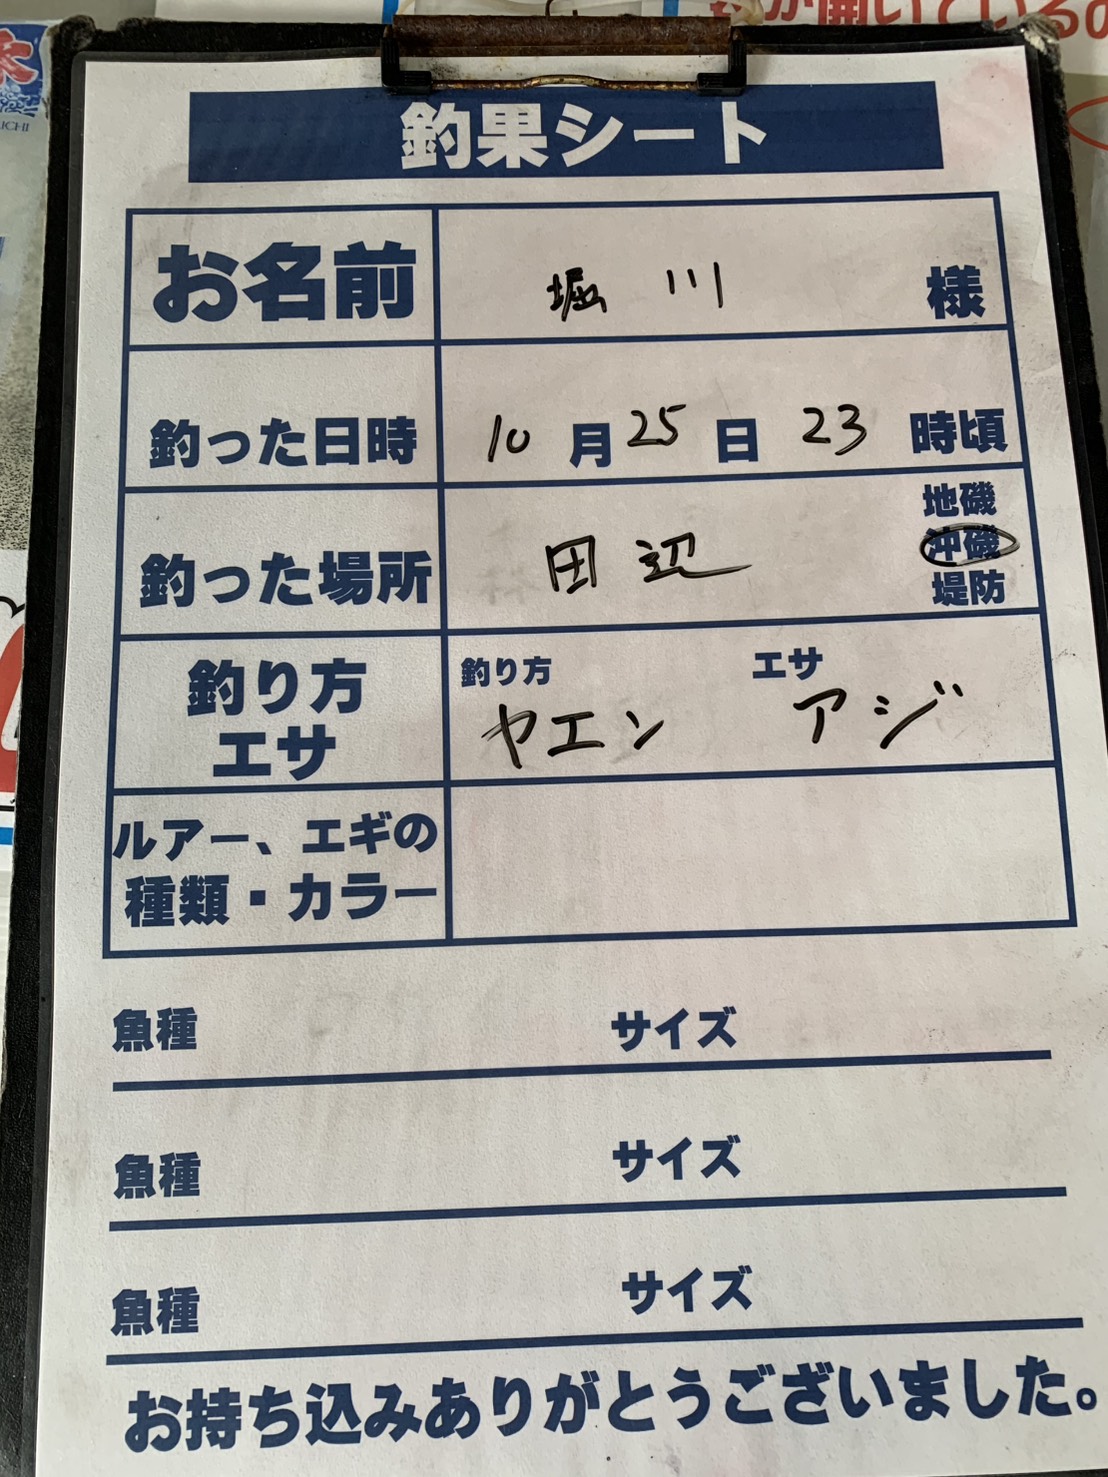 が開いているの
UCHI
釣果シート
お名前 堀川 様
釣った日時 10月25日 23時頃
釣った場所 田辺 地磯
沖磯
堤防
釣り方 エサ
釣り方 エサ
ヤエン アジ
ルアー、エギの
種類・カラー
魚種 サイズ
魚種 サイズ
魚種 サイズ
お持ち込みありがとうございました。